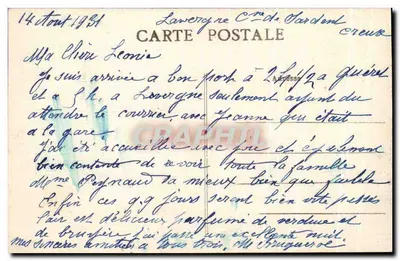 14 Aout 1931 Lavergne Cne de Sardent
CARTE POSTALE Creuse
Ma Chère Leonie
Je suis arrivée a bon port à 2h 1/2 a Guéret
et a 5 h. a Lavergne seulement ayant du
attendre le courrier, avec Jeanne qui était
a la gare.
J'ai été accueillie avec joie et également
bien contente de revoir toute la famille
Mme Peynaud va mieux bien que faible
Enfin ces qq jours seront bien vite passés
l'air est délicieux parfumé de verdure et
de bruyère j'ai passé une excellente nuit
mes sincères amitiés a vous trois, M